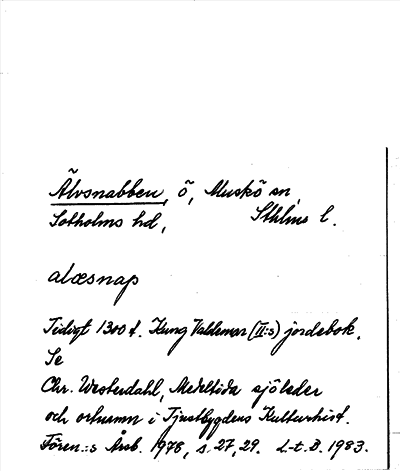 Älvsnabben, ö, Muskö sn,
Sotholms hd, Sthlms l.
alæsnap
Tidigt 1300 t. Kung Valdemar (II:s) jordebok.
Se
Chr. Westerdahl, Medeltida sjöleder
och ortnamn i Tjustbygdens Kulturhist.
Fören:s Årsb. 1978, s. 27, 29. L-t. B. 1983.